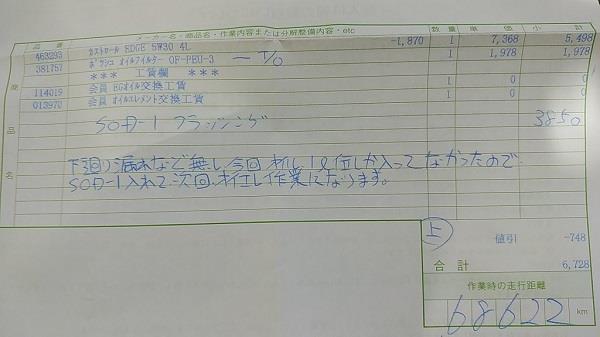 品番 メーカー名・商品名・作業内容または分解整備内容・etc 数量 単価 小計
463293 カストロール EDGE 5W30 4L -1,870 1 7,368 5,498
381757 ボッシュ オイルフィルター OF-PEU-3 1 1,978 1,978
*** 工賃欄 ***
114019 会員 EGオイル交換工賃 1 0 0
013970 会員 オイルエレメント交換工賃 1 0 0
商品名
SOD-1 フラッシング 3850
下回り漏れなど無し、今回オイル1ℓ位しか入ってなかったので
SOD-1入れて、次回、オイエレ作業になります。
上
値引 -748
合計 6,728
作業時の走行距離
68622 km